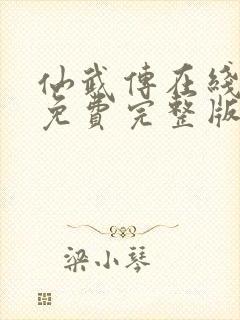 仙武傳在綫
免費完整版
梁小琴